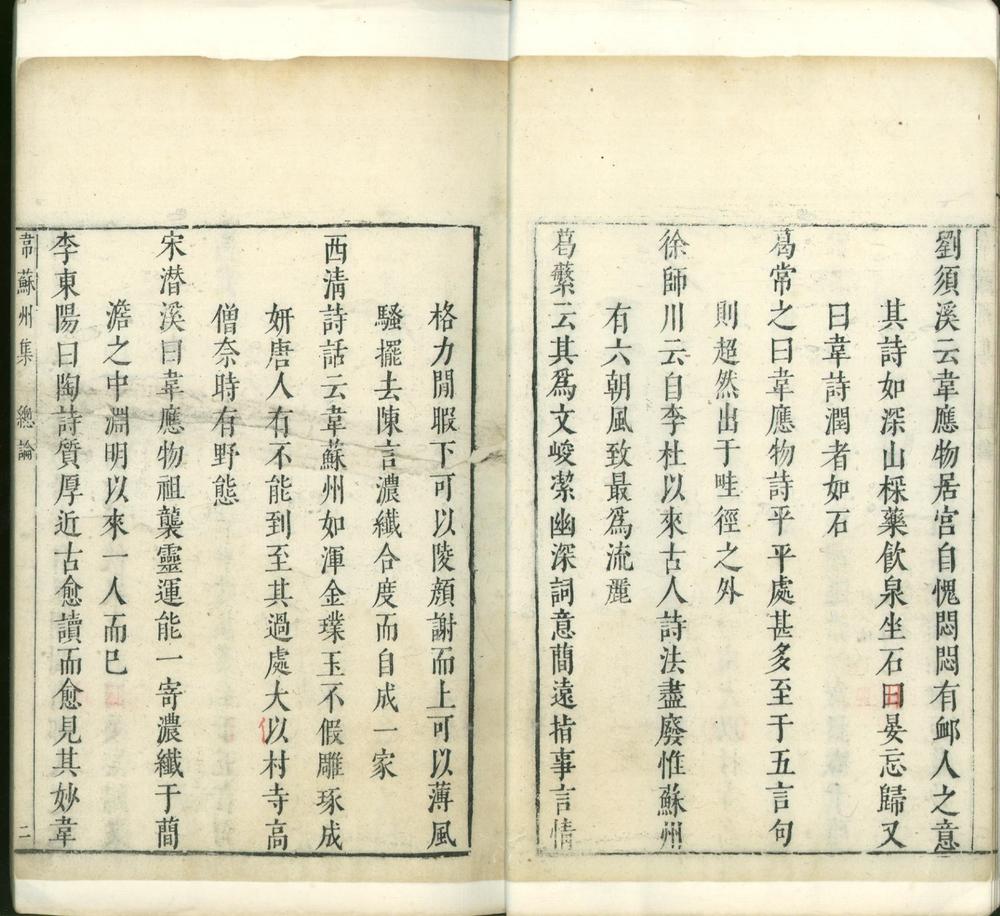 劉須溪云韋應物居官自愧悶悶有䘏人之意
其詩如深山採藥飲泉坐石日晏忘歸又
曰韋詩潤者如石
葛常之曰韋應物詩平平處甚多至于五言句
則超然出于畦徑之外
徐師川云自李杜以來古人詩法盡廢惟蘇州
有六朝風致最爲流麗
葛蘩云其爲文峻潔幽深詞意蕳遠指事言情
格力閒暇下可以陵顔謝而上可以薄風
騷擺去陳言濃纖合度而自成一家
西淸詩話云韋蘇州如渾金璞玉不假雕琢成
妍唐人有不能到至其過處大以村寺高
僧奈時有野態
宋潜溪曰韋應物祖襲靈運能一寄濃纖于蕳
澹之中淵明以來一人而已
李東陽曰陶詩質厚近古愈讀而愈見其妙韋
韋蘇州集 總論 二